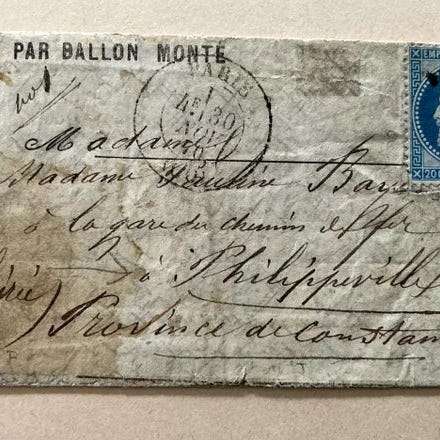 PAR BALLON MONTE
EMP
PARIS
1
4E /30
NOV
70
Madame
Madame Pauline
20C
à la gare du chemin de fer
à Philippeville
Province de Constan